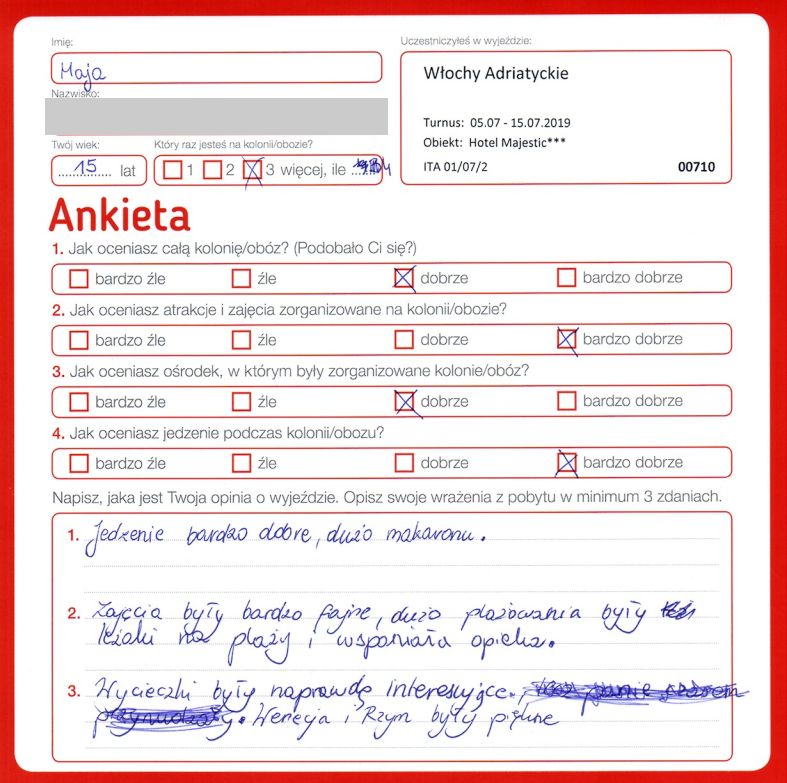 Imię:
Uczestniczyłeś w wyjeździe:
Maja
Włochy Adriatyckie
Nazwisko:
Turnus: 05.07 - 15.07.2019
Twój wiek:
Który raz jesteś na kolonii/obozie?
Obiekt: Hotel Majestic***
15 lat
1 2 3 więcej, ile
ITA 01/07/2
00710
Ankieta
1. Jak oceniasz całą kolonię/obóz? (Podobało Ci się?)
bardzo źle źle dobrze bardzo dobrze
2. Jak oceniasz atrakcje i zajęcia zorganizowane na kolonii/obozie?
bardzo źle źle dobrze bardzo dobrze
3. Jak oceniasz ośrodek, w którym były zorganizowane kolonie/obóz?
bardzo źle źle dobrze bardzo dobrze
4. Jak oceniasz jedzenie podczas kolonii/obozu?
bardzo źle źle dobrze bardzo dobrze
Napisz, jaka jest Twoja opinia o wyjeździe. Opisz swoje wrażenia z pobytu w minimum 3 zdaniach.
1. Jedzenie bardzo dobre, dużo makaronu.
2. Zajęcia były bardzo fajne, dużo plażowania były
leżaki na plaży i wspaniała opieka.
3. Wycieczki były naprawdę interesujące.
Wenecja i Rzym były piękne